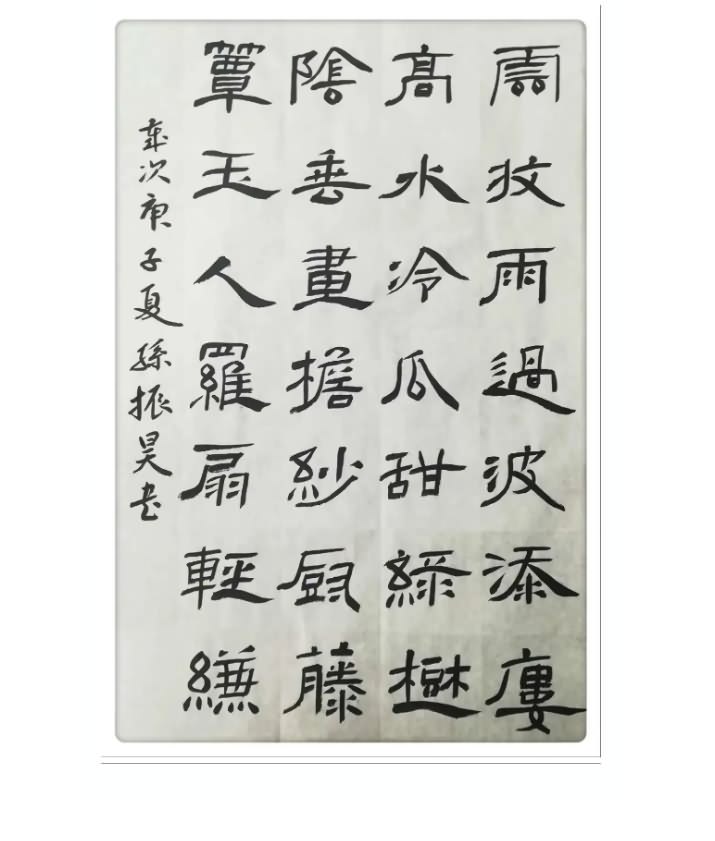 雲收雨過波添廔
高水冷瓜甜緑樹
陰垂畫擔紗厨藤
簟玉人羅扇輕縑
歲次庚子夏孫振昊书